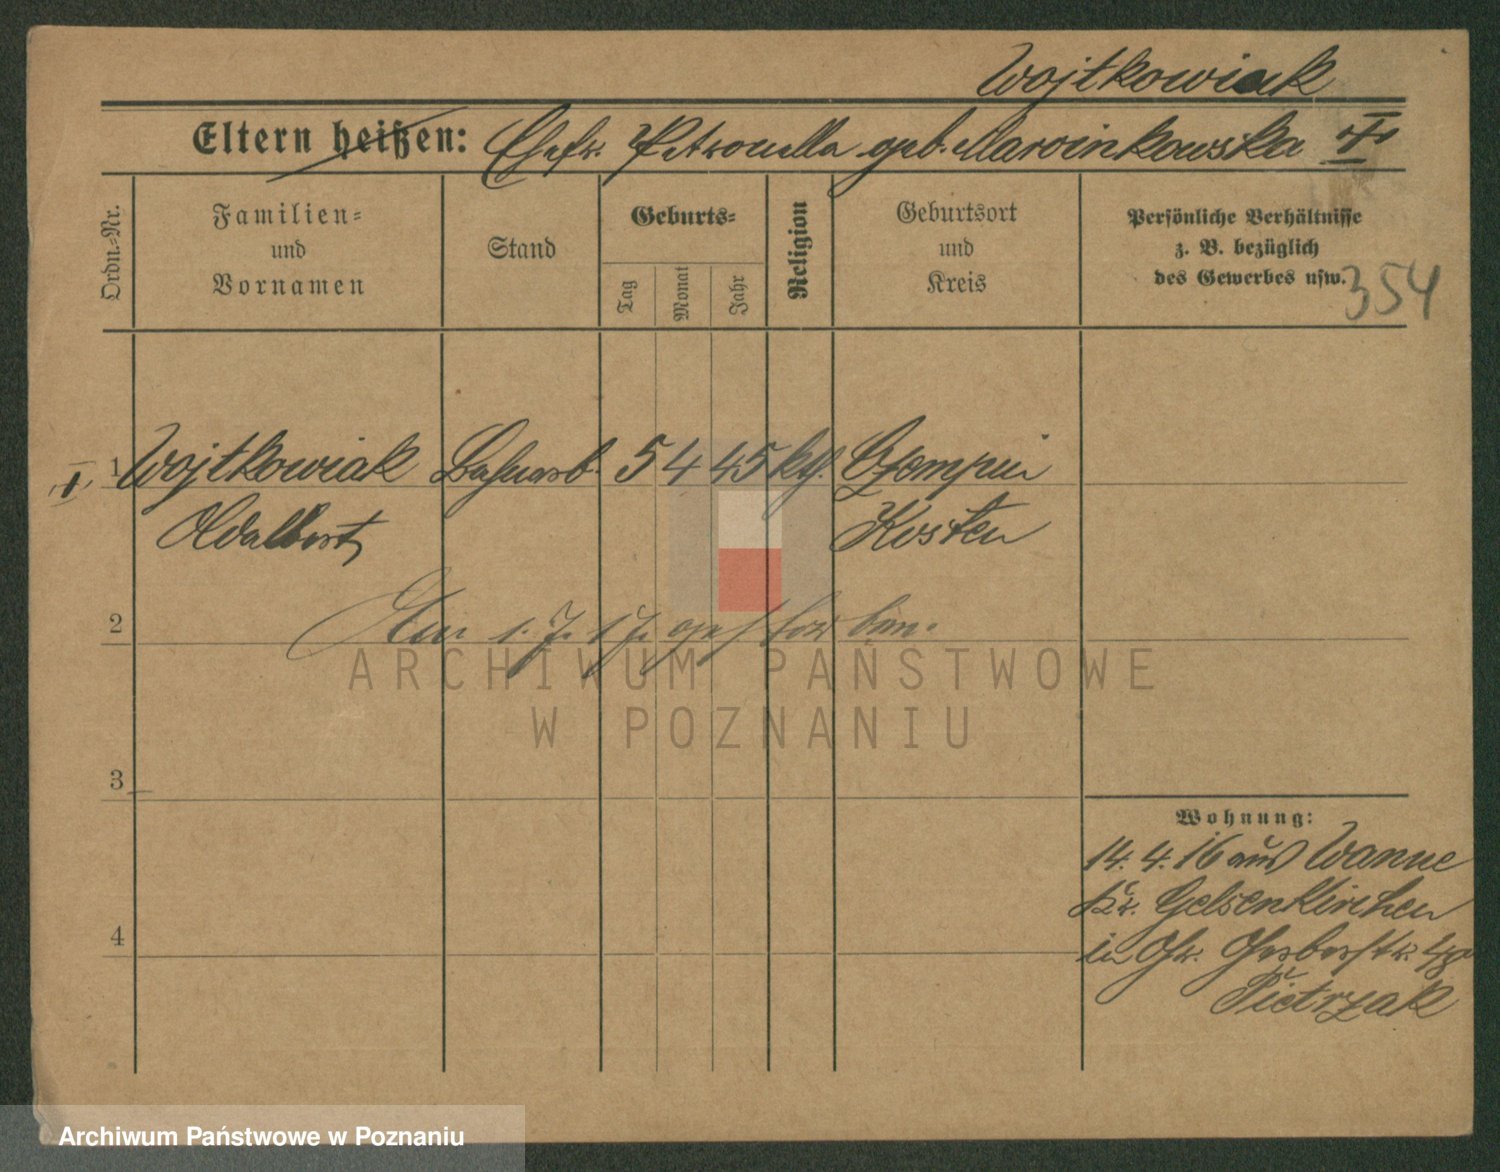 Wojtkowiak
Eltern heißen: Ehefr. Petronella geb. Marcinkowska
Ordn.=Nr.
Familien=
und
Vornamen
Stand
Geburts=
Tag
Monat
Jahr
Religion
Geburtsort
und
Kreis
Persönliche Verhältnisse
z. B. bezüglich
des Gewerbes usw.
354
I 1 Wojtkowiak Bahnarb. 5 4 45 kth. Czempin
Adalbert Kosten
2 Am 1.7.17. gestorben.
ARCHIWUM PAŃSTWOWE
W POZNANIU
3
Wohnung:
14. 4. 16 aus Wanne
Kr. Gelsenkirchen
4
in Gr. Gerberstr. 48
Pietrzak
Archiwum Państwowe w Poznaniu